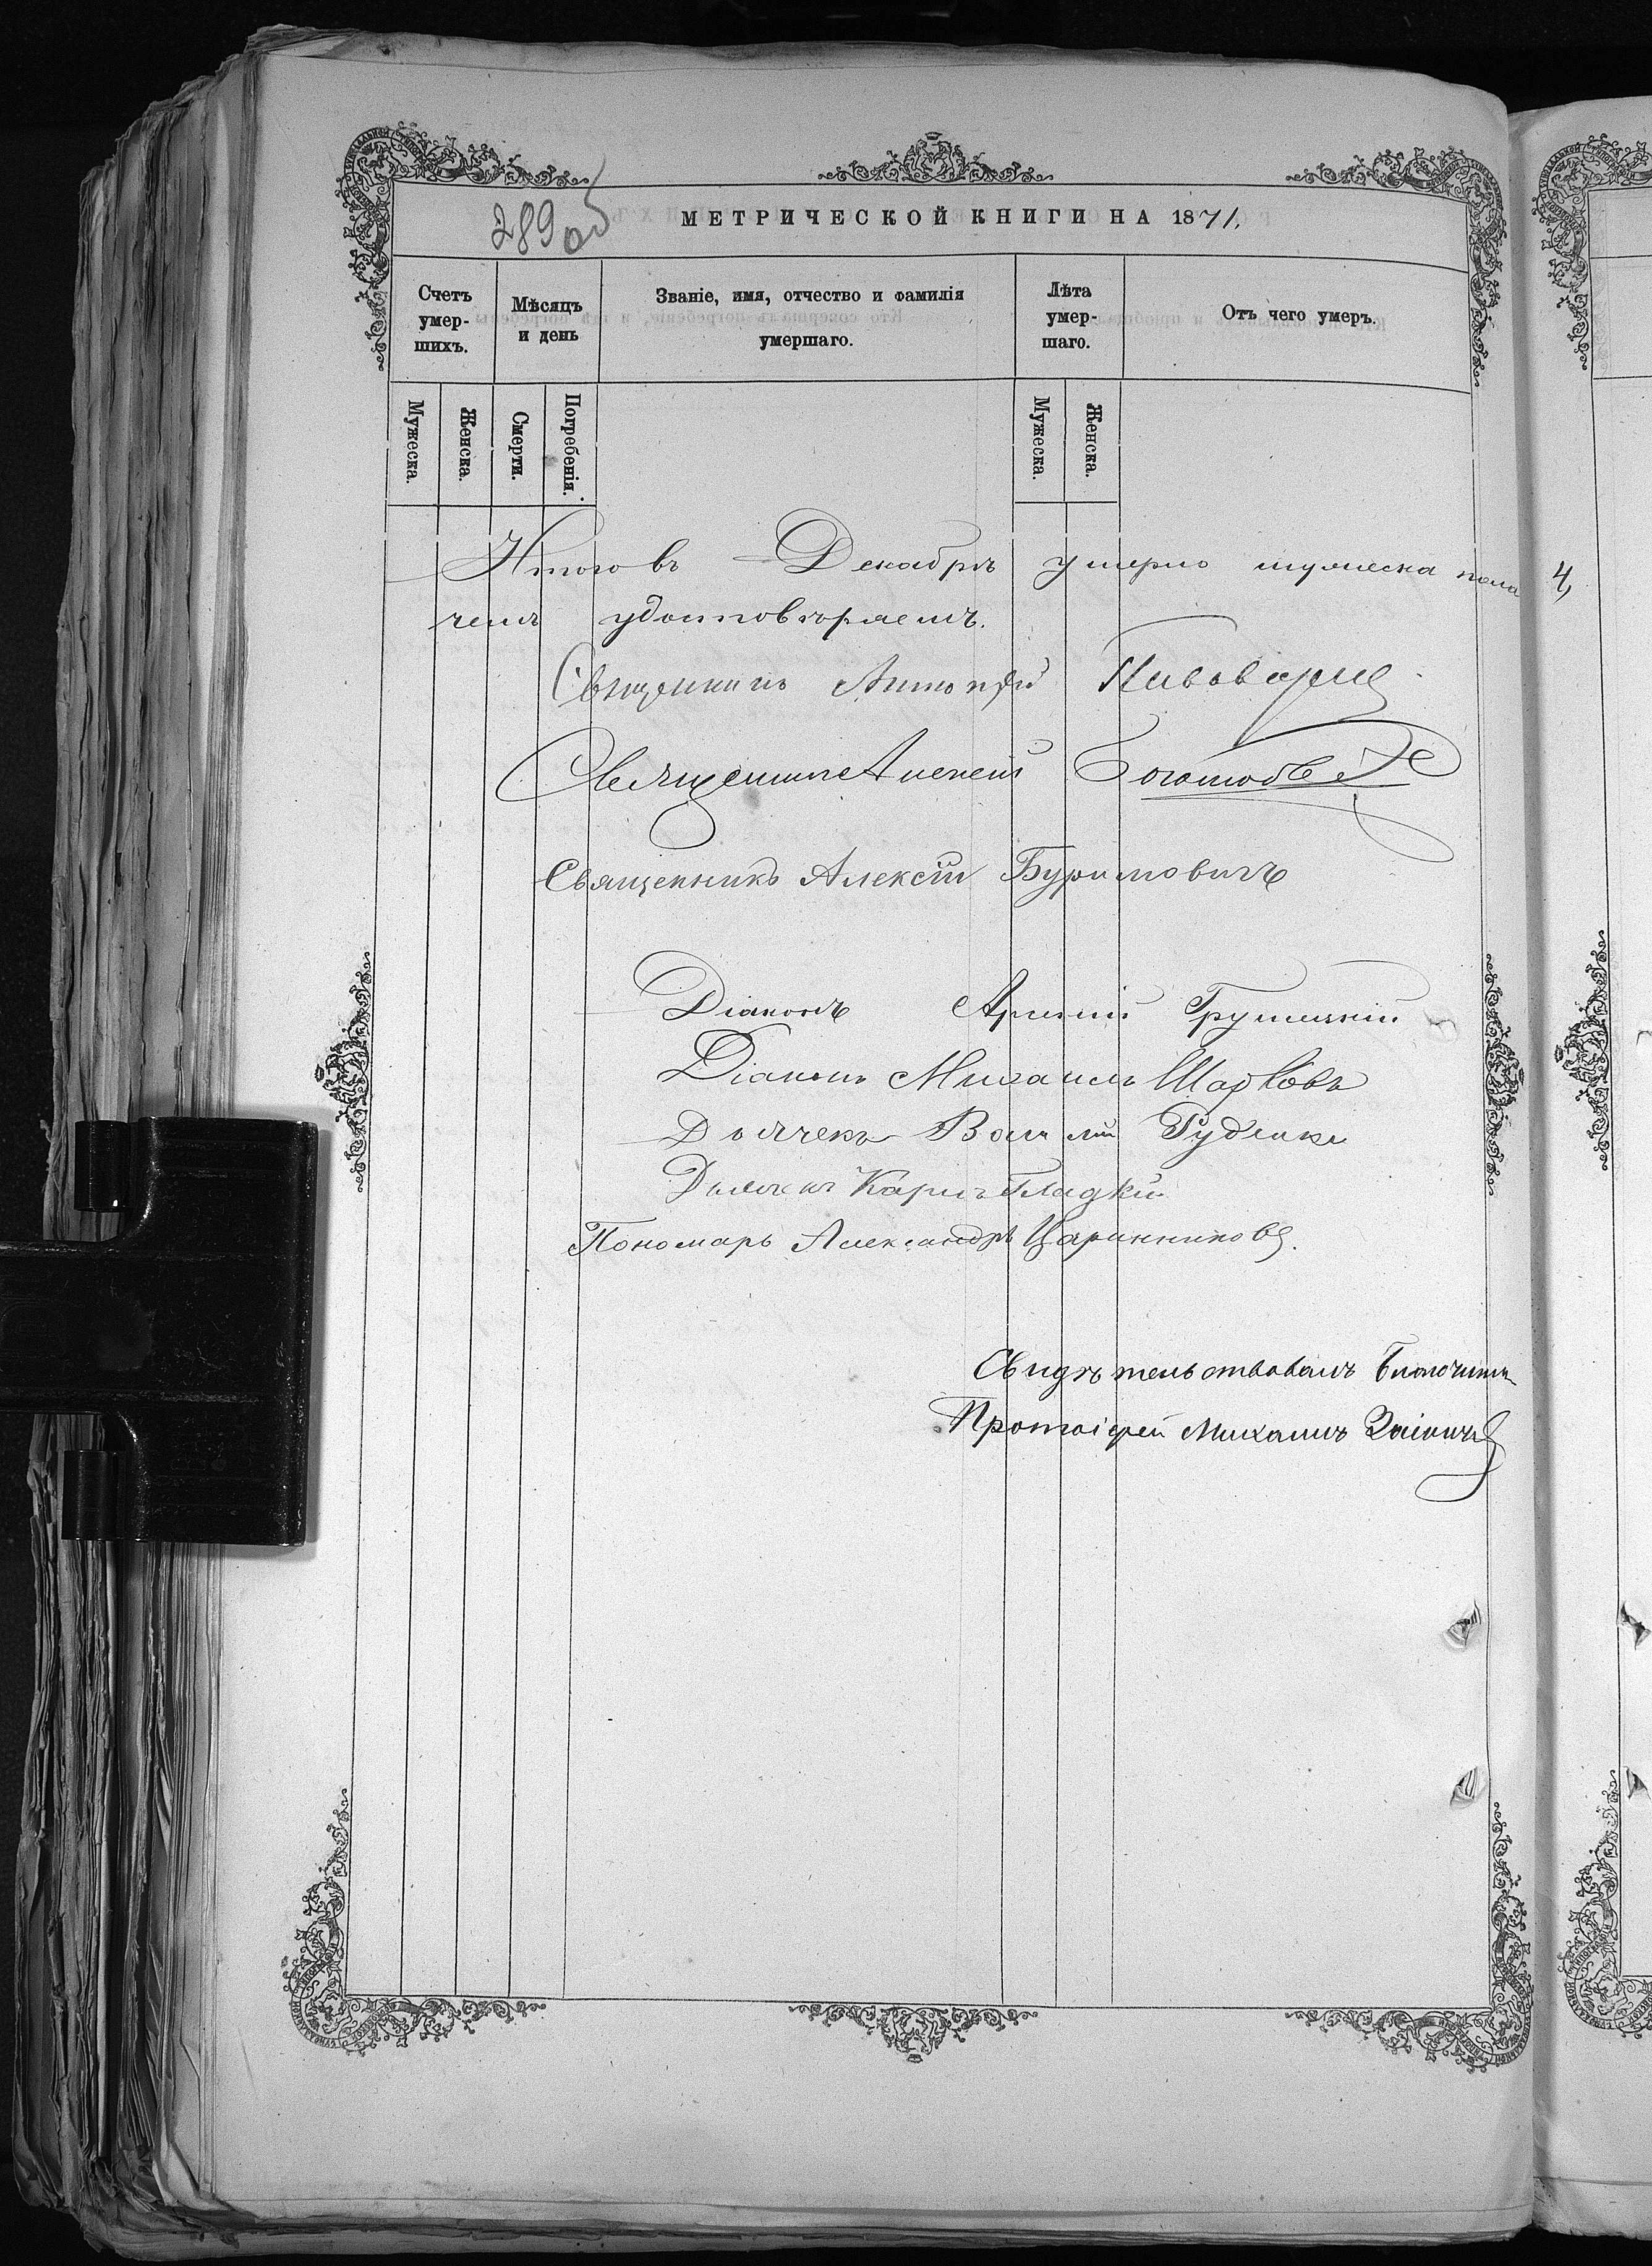 289 об
МЕТРИЧЕСКОЙ КНИГИ НА 1871.
Счетъ умер-шихъ.
Мѣсяцъ и день
Званіе, имя, отчество и фамилія умершаго.
Лѣта умер-шаго.
Отъ чего умеръ.
Мужеска.
Женска.
Смерти.
Погребенія.
Мужеска.
Женска.
Итого въ Декабрѣ умерло мужеска пола 4,
чемъ удостовѣряемъ.
Священникъ Пивоваровъ
Священникъ Алексей
Священникъ Алексій Буримовичъ
Діаконъ
Діаконъ Михаилъ
Дьячекъ Василій Руденко
Дьячекъ Карпъ Гладкій
Пономарь Александръ Царинниковъ.
Свидѣтельствовалъ Благочинный
Протоіерей Михаилъ